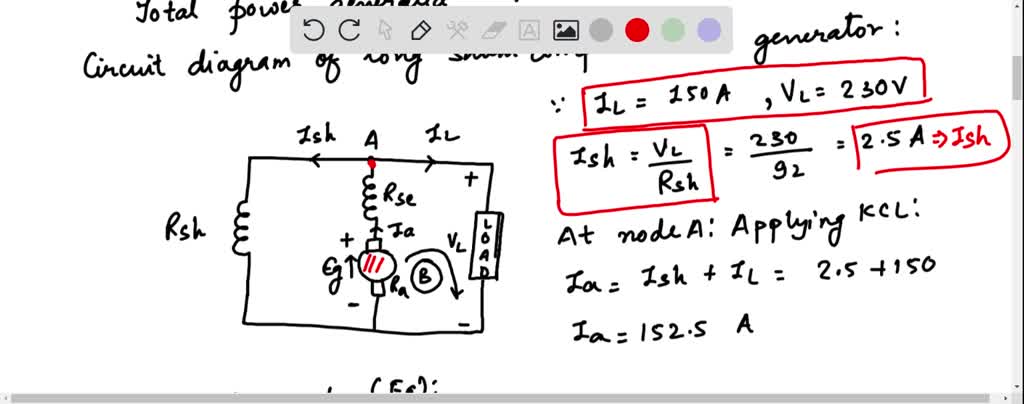 Total power
Circuit diagram of long
generator:
∵ IL = 150A , VL = 230V
Ish = VL / Rsh = 230 / 92 = 2.5 A ⇒ Ish
At node A: Applying KCL:
Ia = Ish + IL = 2.5 + 150
Ia = 152.5 A
Ish A IL
Rse
+
Rsh
Ia
+
Eg
Ra
B
VL
LOAD
-
-
(Eg):